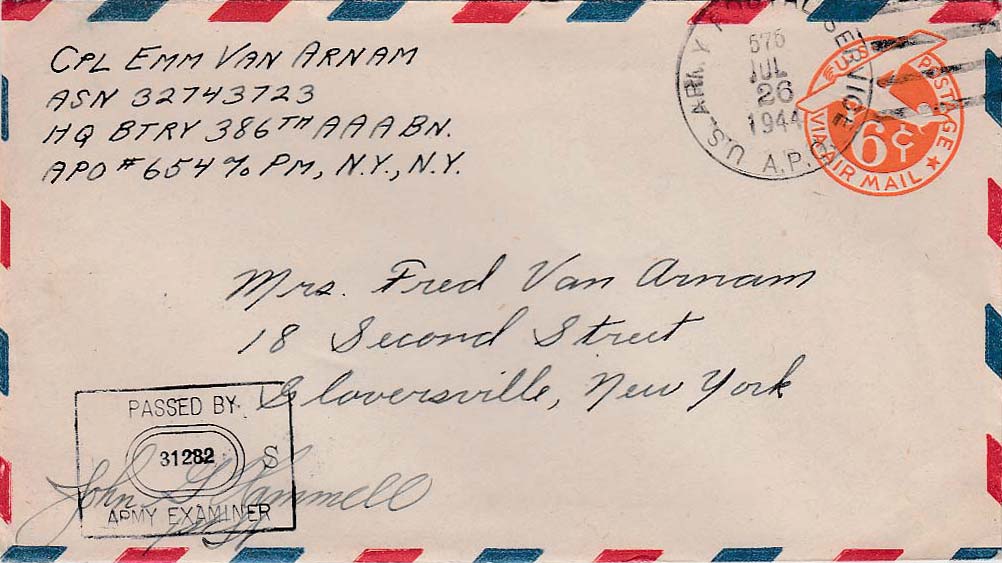 CPL EMM VAN ARNAM
ASN 32743723
HQ BTRY 386TH AAA BN.
APO #654 % PM, N.Y., N.Y.
U.S. ARMY POSTAL SERVICE
676
JUL
26
1944
A.P.O.
U.S. POSTAGE
6¢
VIA AIR MAIL
Mrs. Fred Van Arnam
18 Second Street
Gloversville, New York
PASSED BY
31282 S
ARMY EXAMINER
John